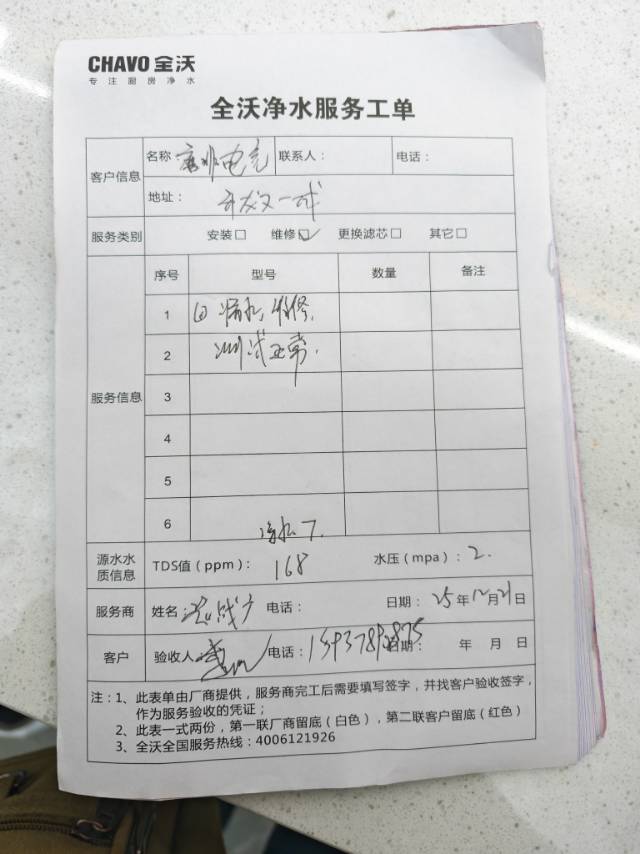 CHAVO 全沃
专注厨房净水
全沃净水服务工单
客户信息
名称 联系人： 电话：
地址：
服务类别 安装□ 维修☑ 更换滤芯□ 其它□
服务信息
序号 型号 数量 备注
1 漏水，维修.
2 测试正常.
3
4
5
6
净水7.
源水水质信息 TDS值（ppm）： 168 水压（mpa）：2.
服务商 姓名 电话： 日期：25年12月21日
客户 验收人 电话： 日期： 年 月 日
注：1、此表单由厂商提供，服务商完工后需要填写签字，并找客户验收签字，
作为服务验收的凭证；
2、此表一式两份，第一联厂商留底（白色），第二联客户留底（红色）
3、全沃全国服务热线：4006121926